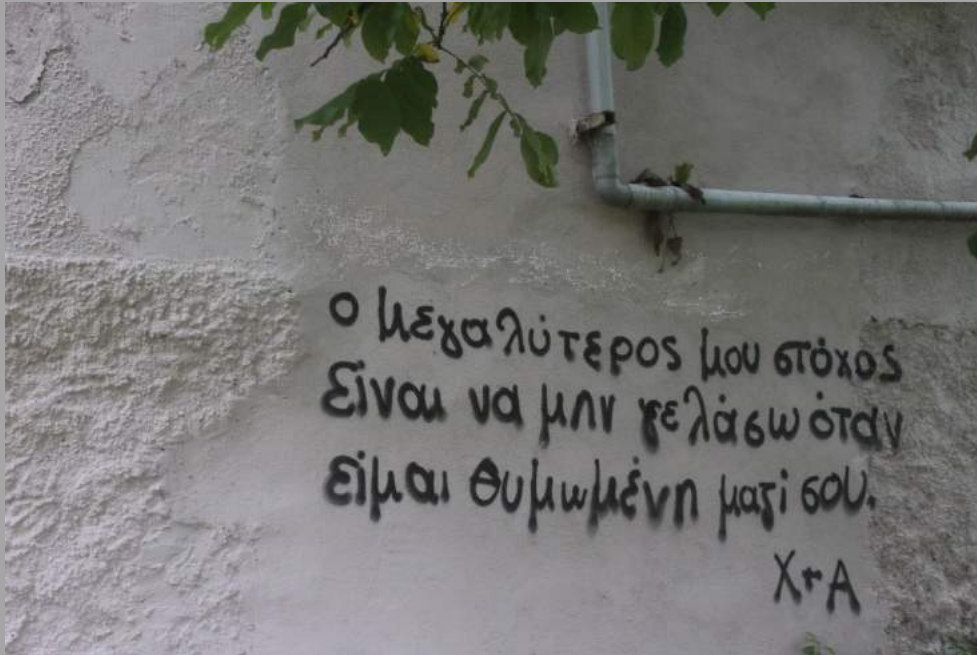 Ο μεγαλύτερος μου στόχος
Είναι να μην γελάσω όταν
είμαι θυμωμένη μαζί σου.
Χ+Α